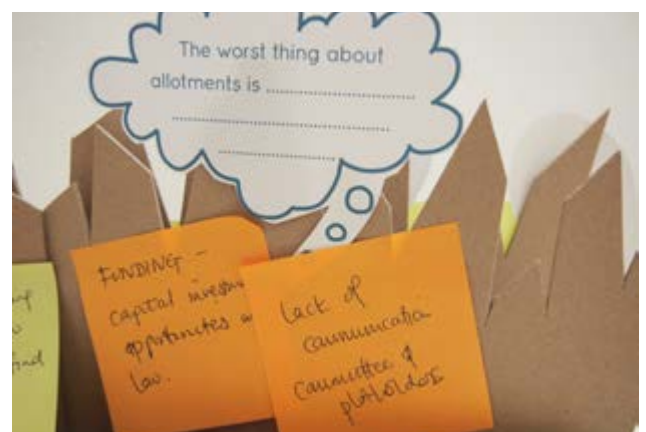 The worst thing about
allotments is ..............................
............................................
..............................
FUNDING -
capital
opportunities
law.
Lack of
communication
committee &
plotholders